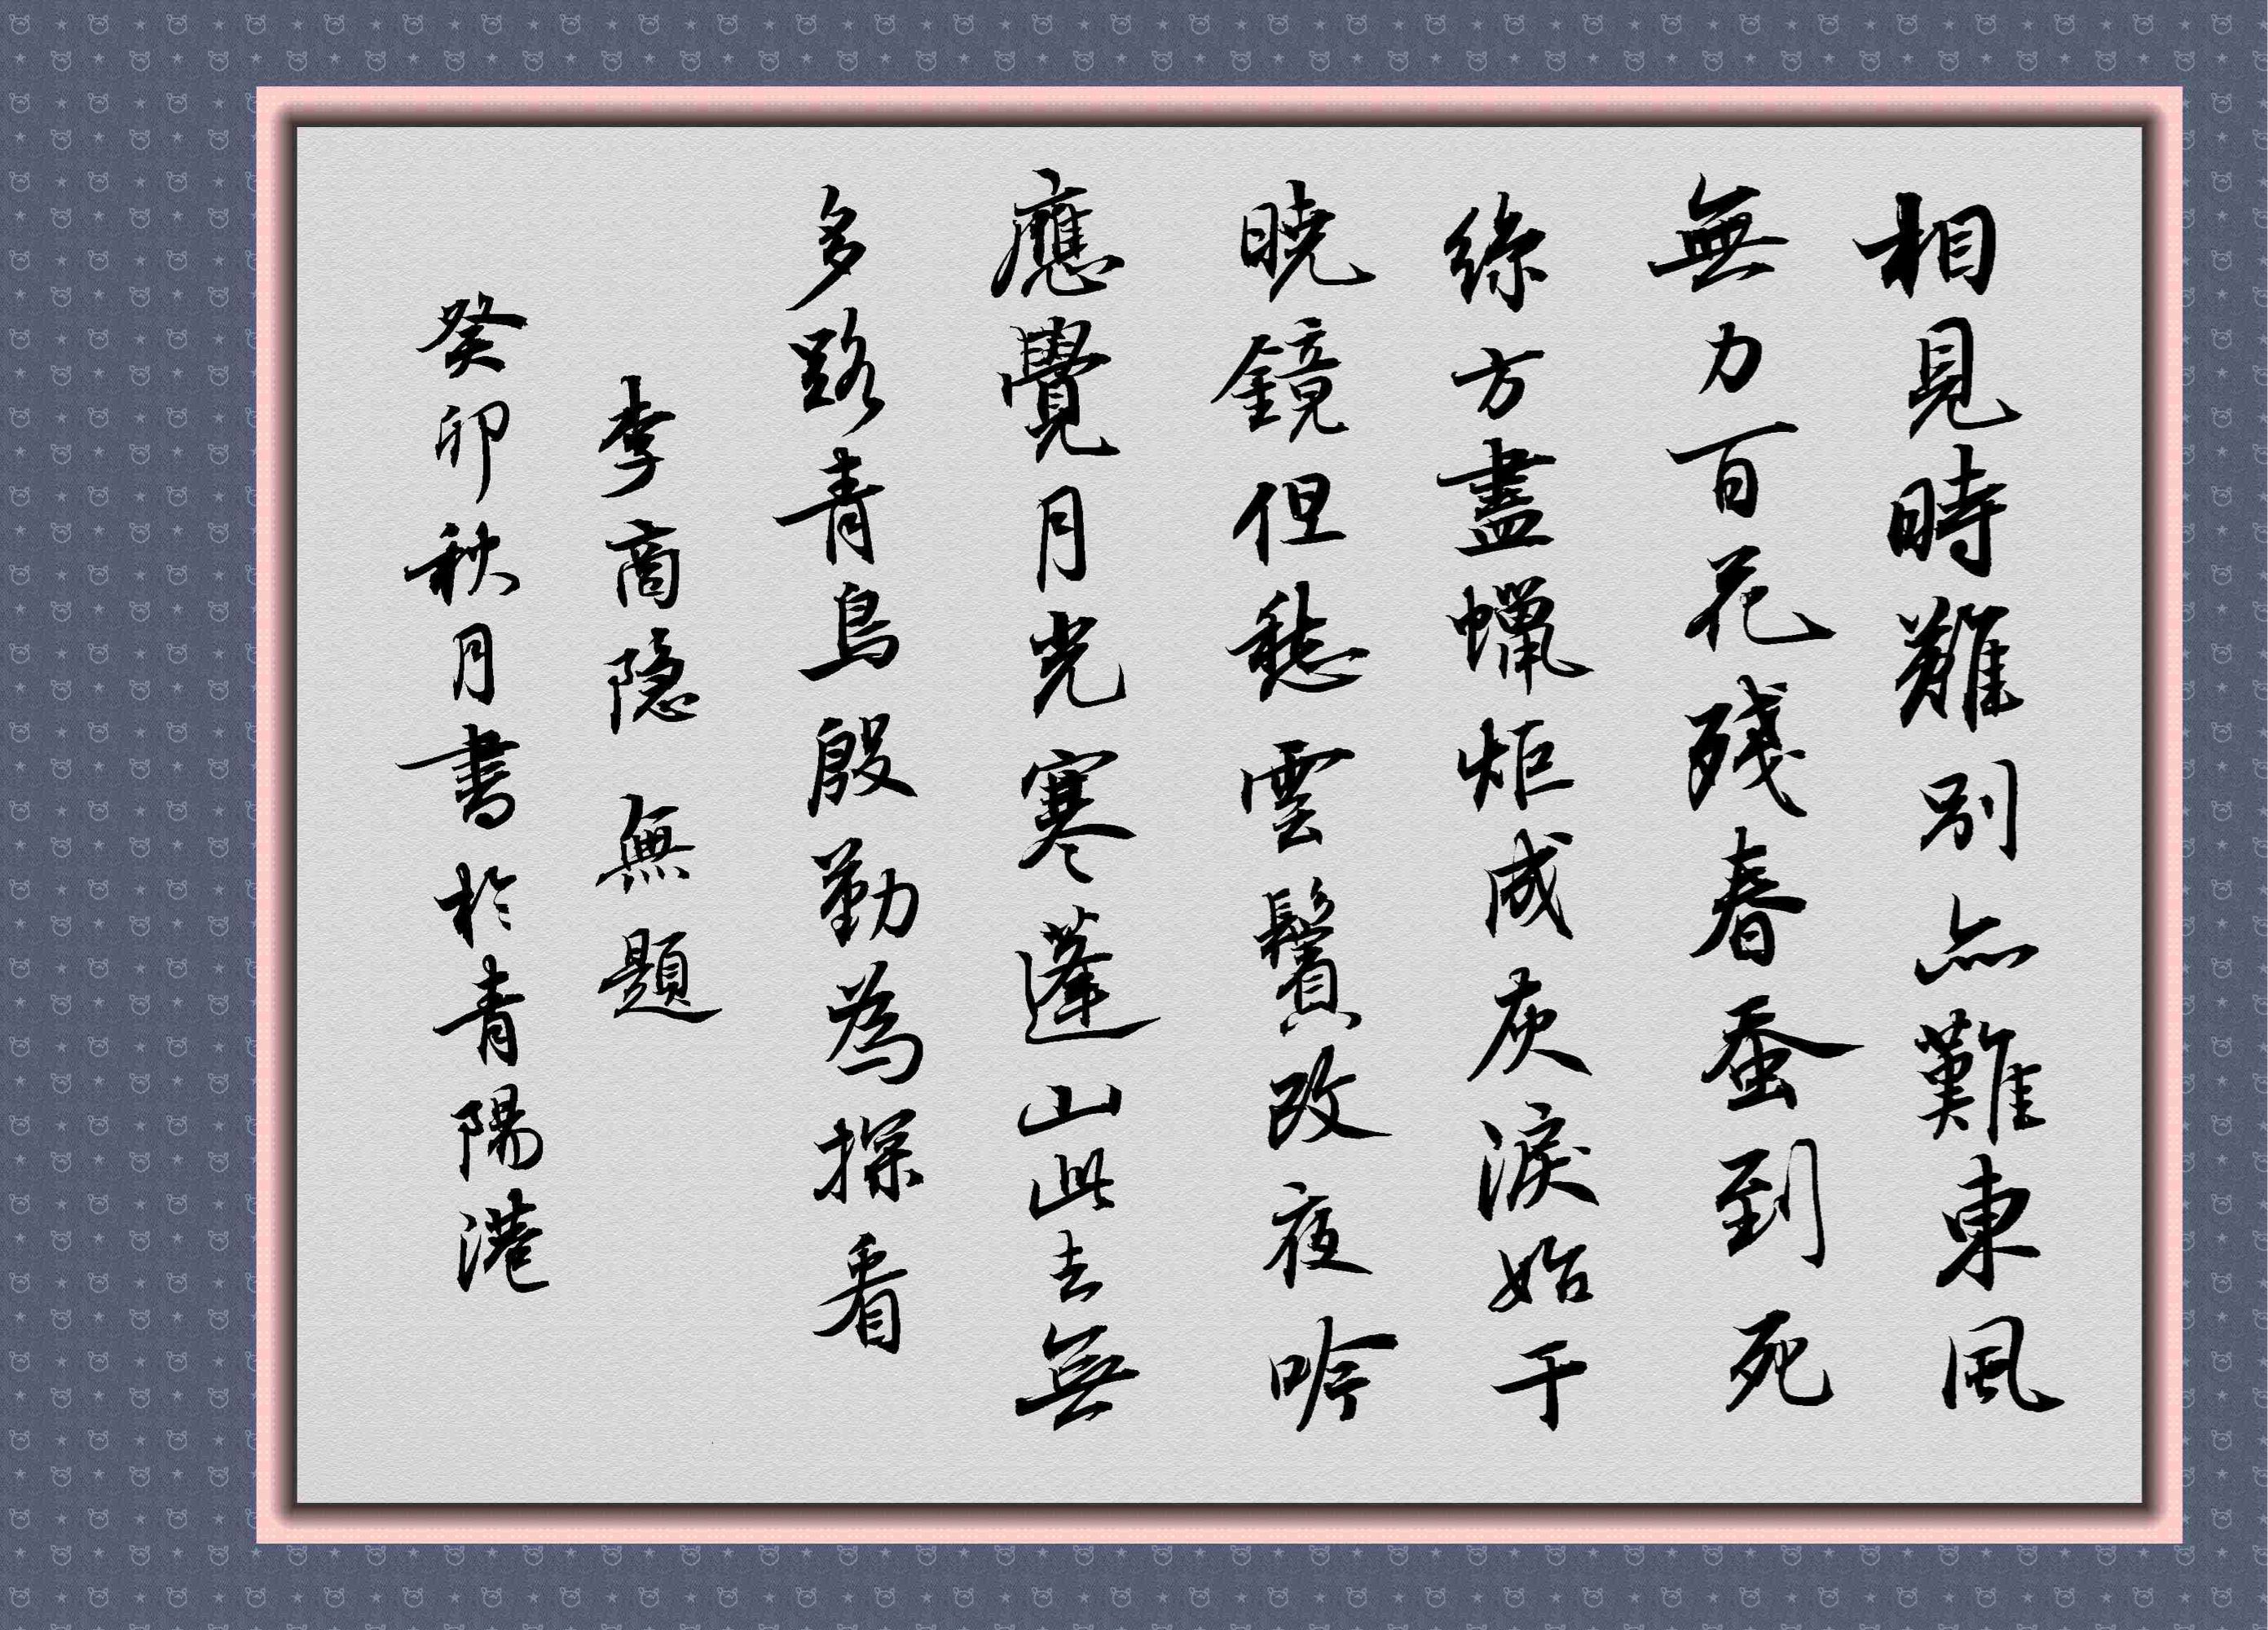 相見時難別亦難東風
無力百花殘春蚕到死
絲方盡蠟炬成灰淚始干
曉鏡但愁雲鬢改夜吟
應覺月光寒蓬山此去無
多路青鳥殷勤為探看
李商隐 無題
癸卯秋月書於青陽港